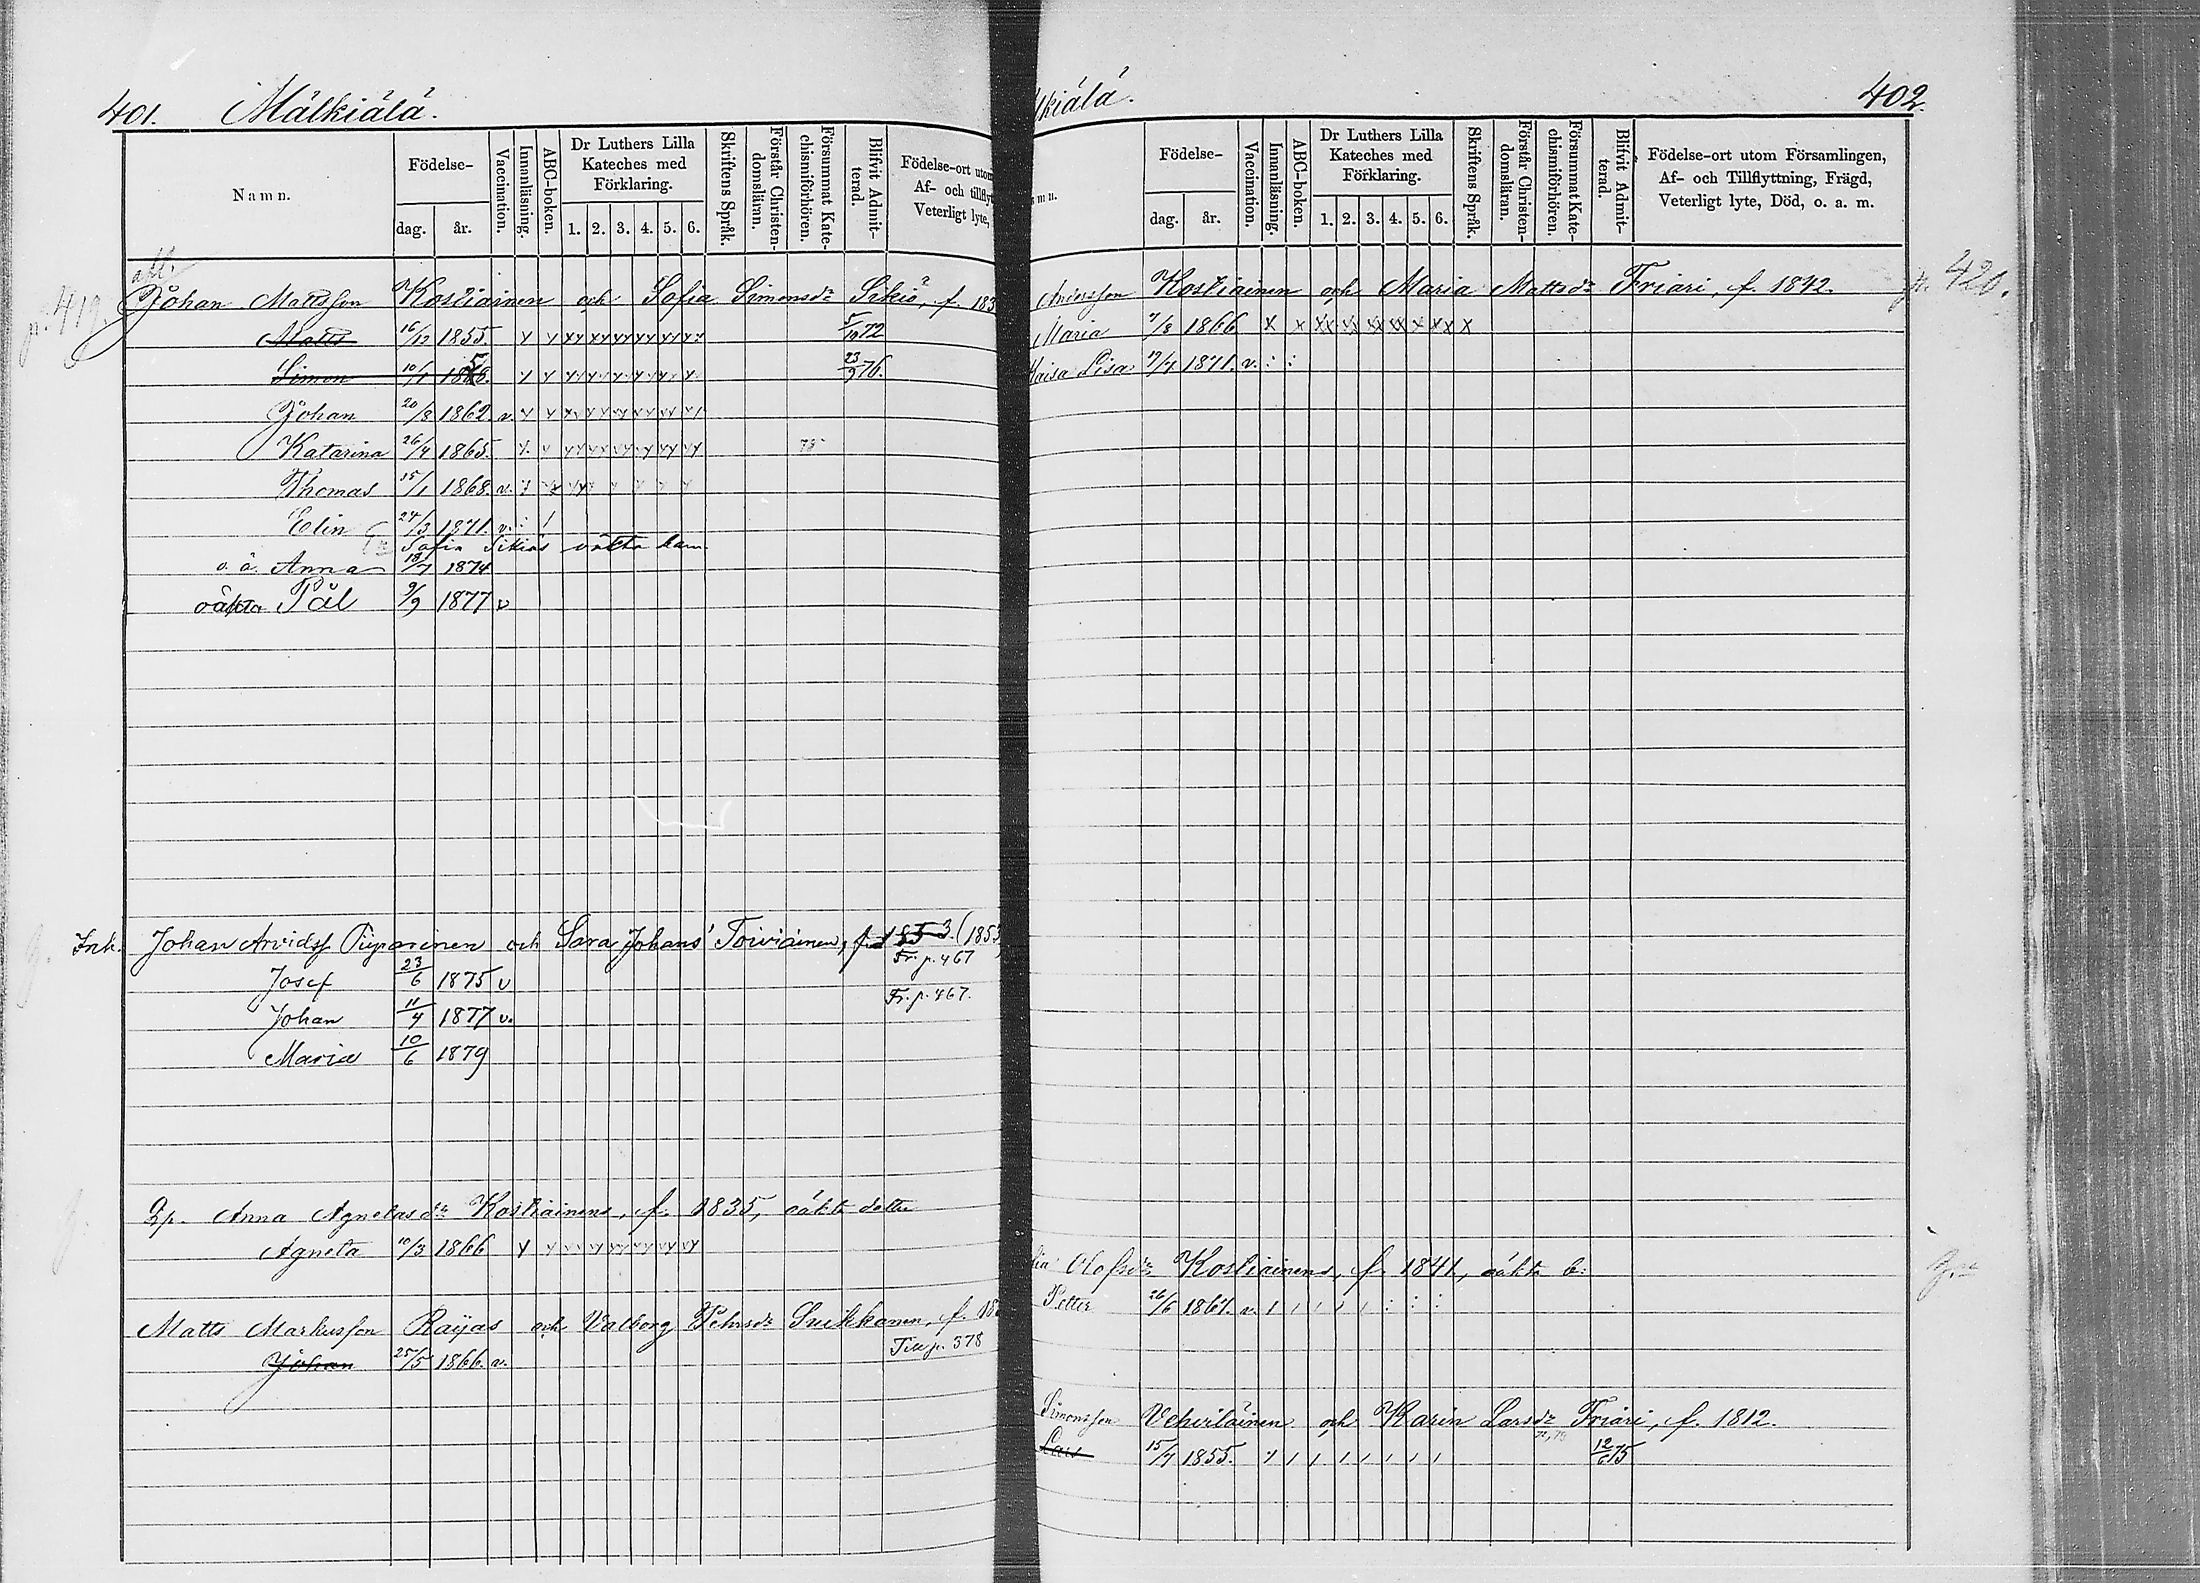 401. Mälkiälä.
Namn.
Födelse-
dag. år.
Vaccination.
Innanläsning.
ABC-boken.
Dr Luthers Lilla Kateches med Förklaring.
1. 2. 3. 4. 5. 6.
Skriftens Språk.
Förstår Christen-domsläran.
Försummat Kate-chismiförhören.
Blifvit Admit-terad.
Födelse-ort utom
Af- och tillfly
Veterligt lyte,
p. 419.
Johan Mattsson Kostiainen och Sofia Simonsdr Sikiö, f. 183
Matts 16/12 1855. 5/10 72
Simon 10/1 185 23/9 76.
Johan 20/8 1862. v.
Katarina 26/4 1865. 78
Thomas 15/1 1868. v.
Elin 24/3 1871. v.
Sofia Sikiös oäkta barn
o. ä. Anna 18/7 1874
oäkta Pål 9/9 1877 v
Inh. Johan Arvidsf Piiparinen och Sara Johans Toiviainen, f. 1853. (1853
Fr. p. 467
Josef 23/6 1875 v
Fr. p. 467.
Johan 11/4 1877 v.
Maria 10/6 1879
Qp. Anna Agnetasdr Kostiainens, f. 1835, oäkta dotter
Agneta 10/3 1866
Matts Markusson Raijas och Valborg Pehrsdr Suikkanen, f. 18
Till p. 378
Johan 25/5 1866. v.
lkiälä. 402.
mn.
Födelse-
dag. år.
Vaccination.
Innanläsning.
ABC-boken.
Dr Luthers Lilla Kateches med Förklaring.
1. 2. 3. 4. 5. 6.
Skriftens Språk.
Förstår Christen-domsläran.
Försummat Kate-chismiförhören.
Blifvit Admit-terad.
Födelse-ort utom Församlingen,
Af- och Tillflyttning, Frägd,
Veterligt lyte, Död, o. a. m.
Andersson Kostiainen och Maria Mattsdr Friari, f. 1842. 420.
Maria 7/8 1866
Maisa Lisa 17/7 1871. v.
Olofsdr Kostiainens, f. 1841, oäkta b:
Petter 26/6 1867. v.
Simonsson Vehviläinen och Karin Larsdr Friari, f. 1812.
Lars 15/7 1855. 12/6 75